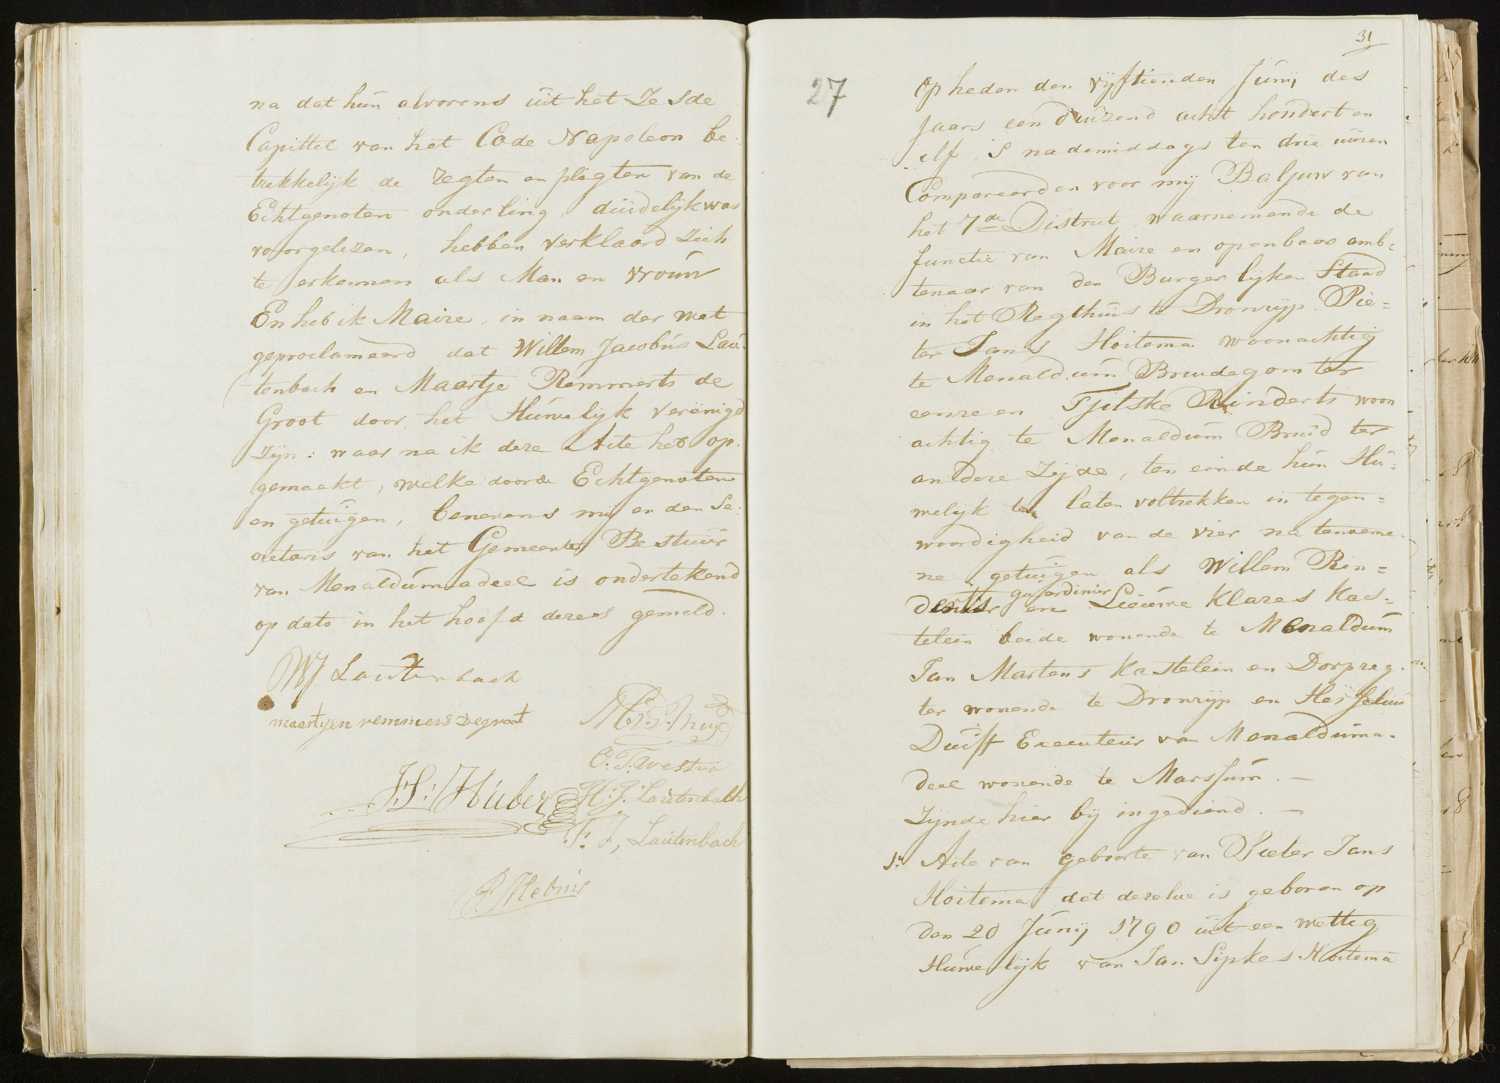 na dat hun alvorens uit het Zesde
Capittel van het Code Napoleon be-
trekkelijk de regten en pligten van de
Echtgenoten onderling, duidelijk was
voorgelezen, hebben verklaard zich
te erkennen als Man en vrouw
En heb ik Maire, in naam der wet
geproclameerd dat Willem Jacobus Lau-
tenbach en Maartje Remmerts de
Groot door het Huwelijk verënigd
zijn: waar na ik deze Acte heb op-
gemaakt, welke door de Echtgenoten
en getuigen, benevens mij en den Se-
cretaris van het Gemeente Bestuur
van Menaldumadeel is ondertekend
op dato in het hoofd dezes gemeld.
WJ Lautenbach
maertijen remmers de groot
C: T: westra
J:S: Huber
H: J: Lautenbach
F: J, Lautenbach
27
31
Op heden den vijftienden Junij des
Jaars een duizend acht hondert en
elf 's nademiddags ten drie uuren
Compareerden voor mij Baljuw van
het 7de District waarnemende de
functie van Maire en openbaar amb-
tenaar van den Burgerlijke Staad
in het Regthuis te Dronrijp Pie=
ter Jans Hoitema woonachtig
te Menaldum Bruidegom ter
eenre en Tjitske Rinderts woon
achtig te Menaldum Bruid ter
andere Zijde, ten einde hun Hu-
welijk te laten voltrekken in tegen=
woordigheid van de vier na tenoeme-
ne getuigen als Willem Rin=
derts gardenier en Lieuwe Klazes Kas-
telein beide wonende te Menaldum
Jan Martens Kastelein en Dorpreg-
ter wonende te Dronrijp en Hesselius
Duiff Executeur van Menalduma-
deel wonende te Marssum. —
Zijnde hier bij ingediend. —
1: Acte van geboorte van Pieter Jans
Hoitema dat dezelve is geboren op
den 20 Junij 1790 uit een wettig
Huwelijk van Jan Sipkes Hoitema